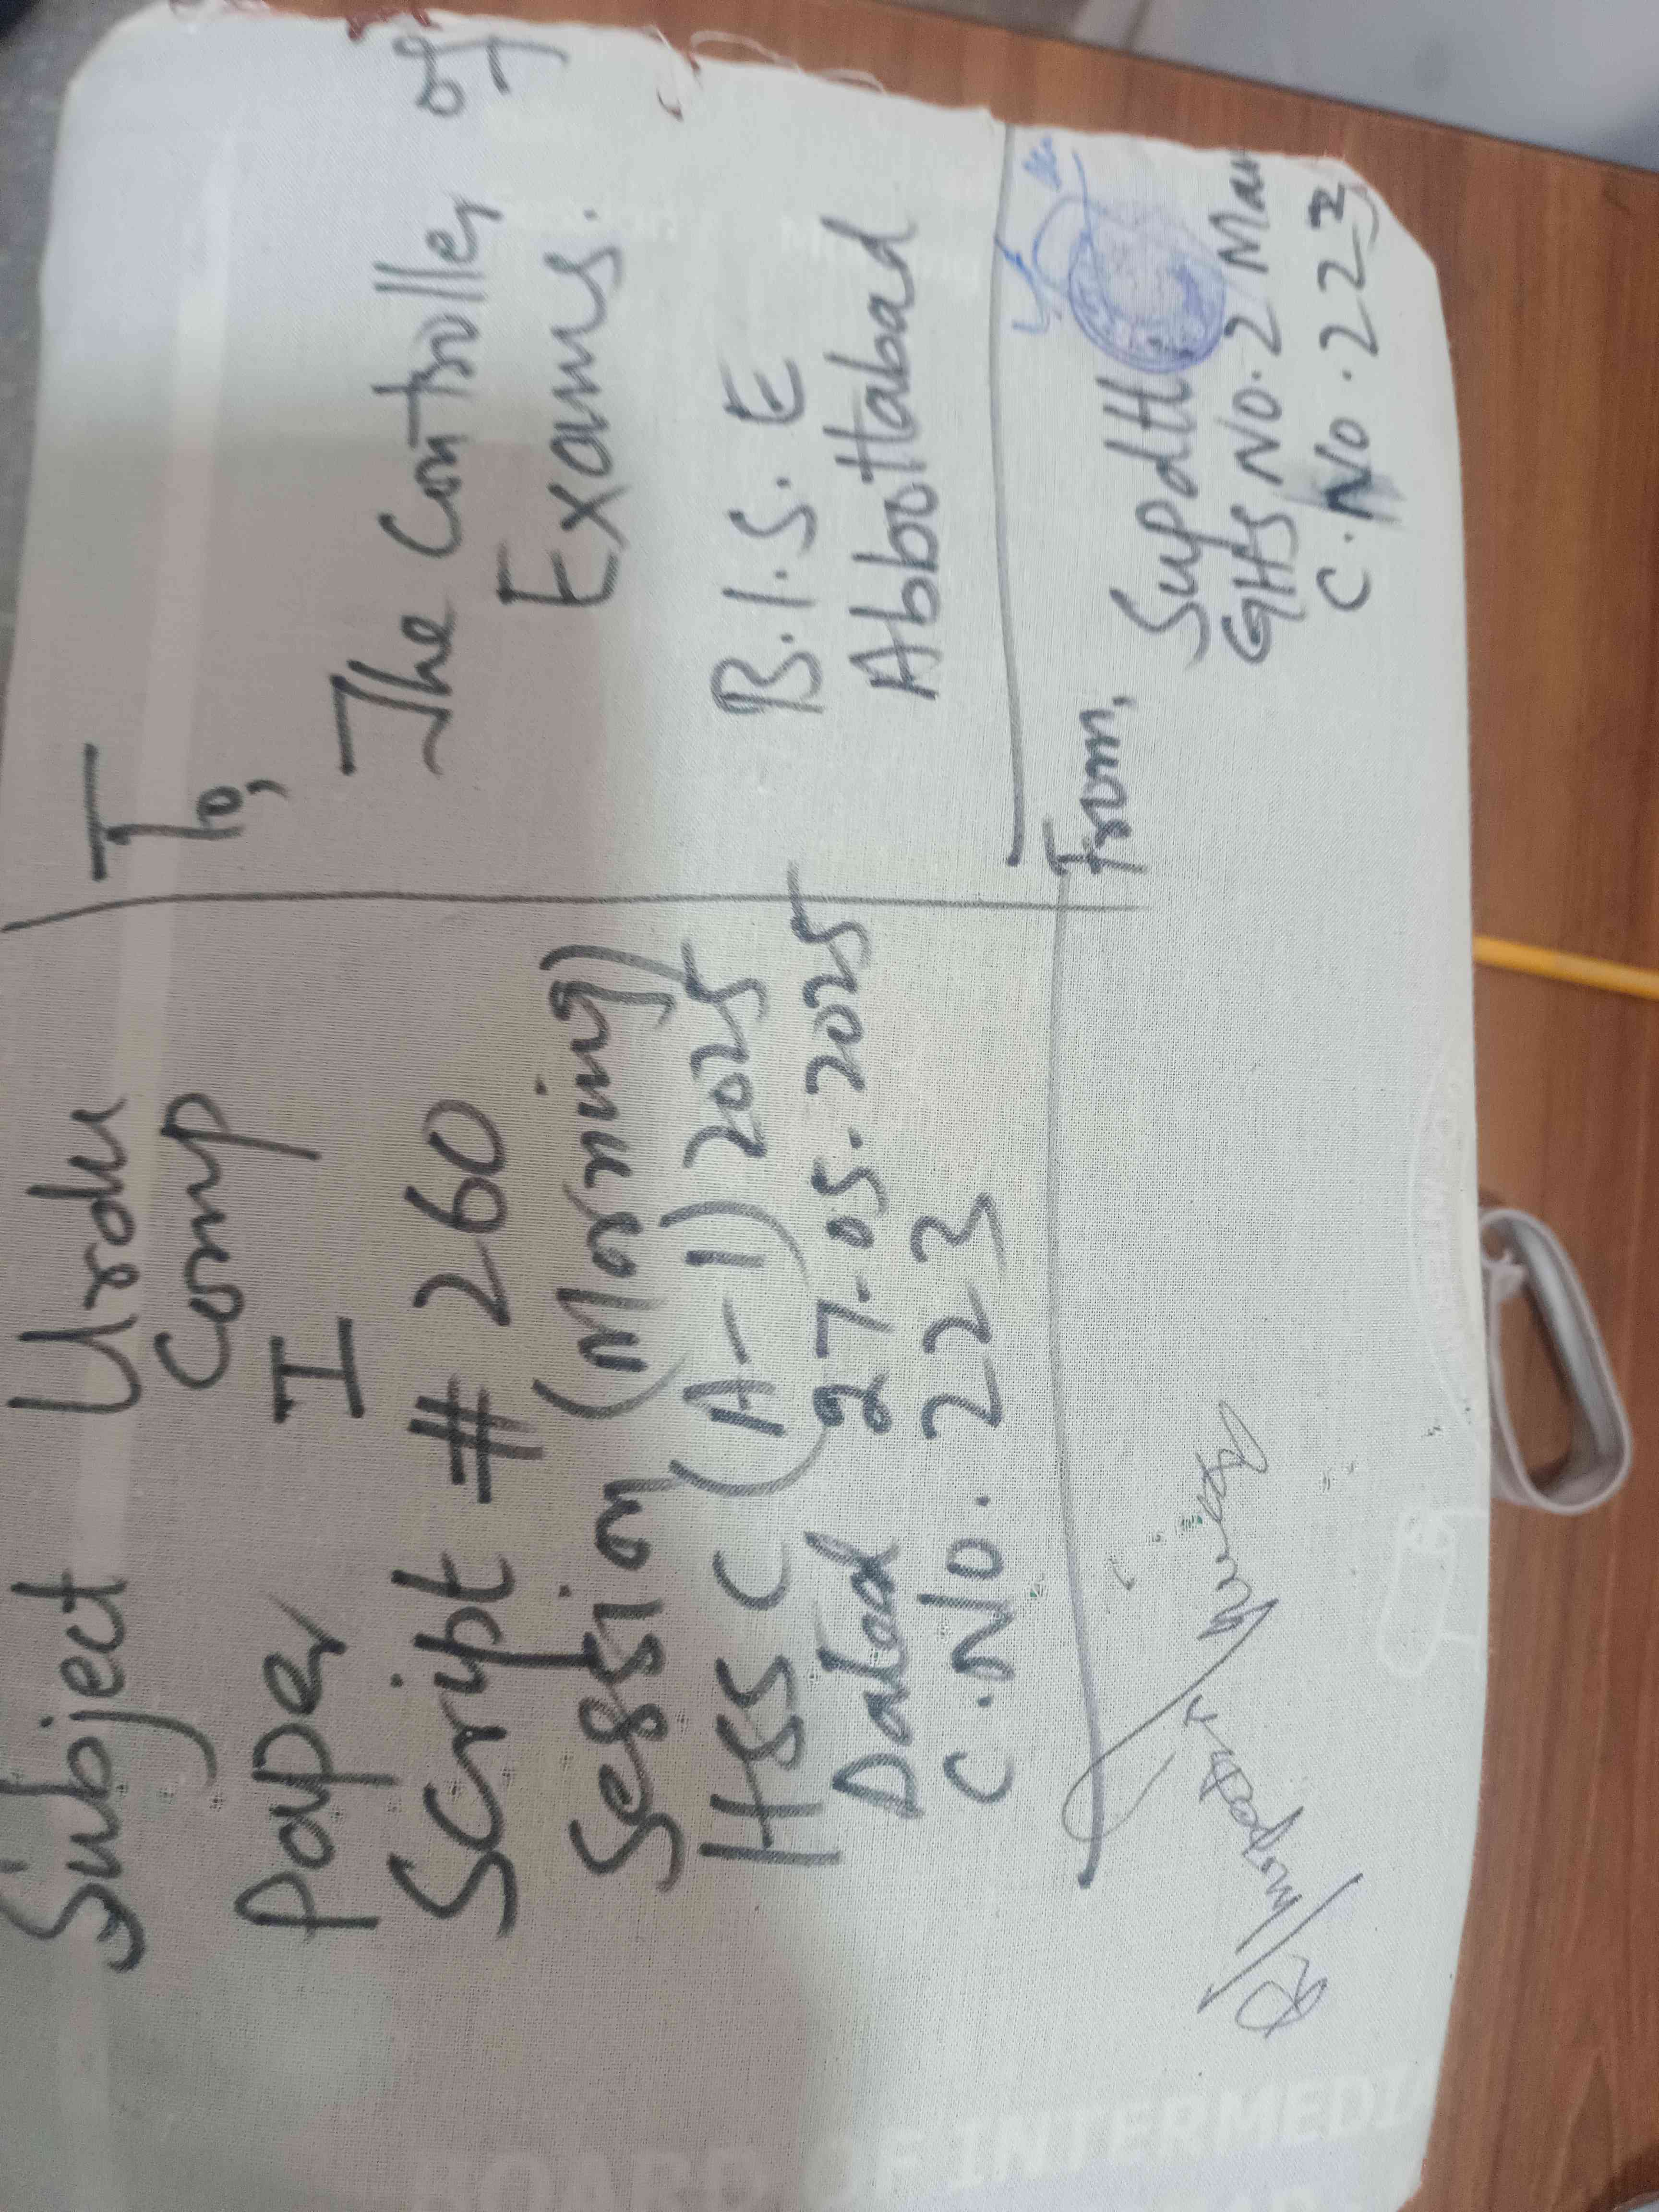 Subject Urdu
Comp
Paper I
Script # 260
Session (Morning)
HSSC (A-1) 2025
Dated 27.05.2025
C.No. 223
To,
The Controller of
Exams.
B.I.S.E
Abbottabad
From,
Supdtt
GHS No.2 Man
C.No.223
BOARD OF INTERMEDI